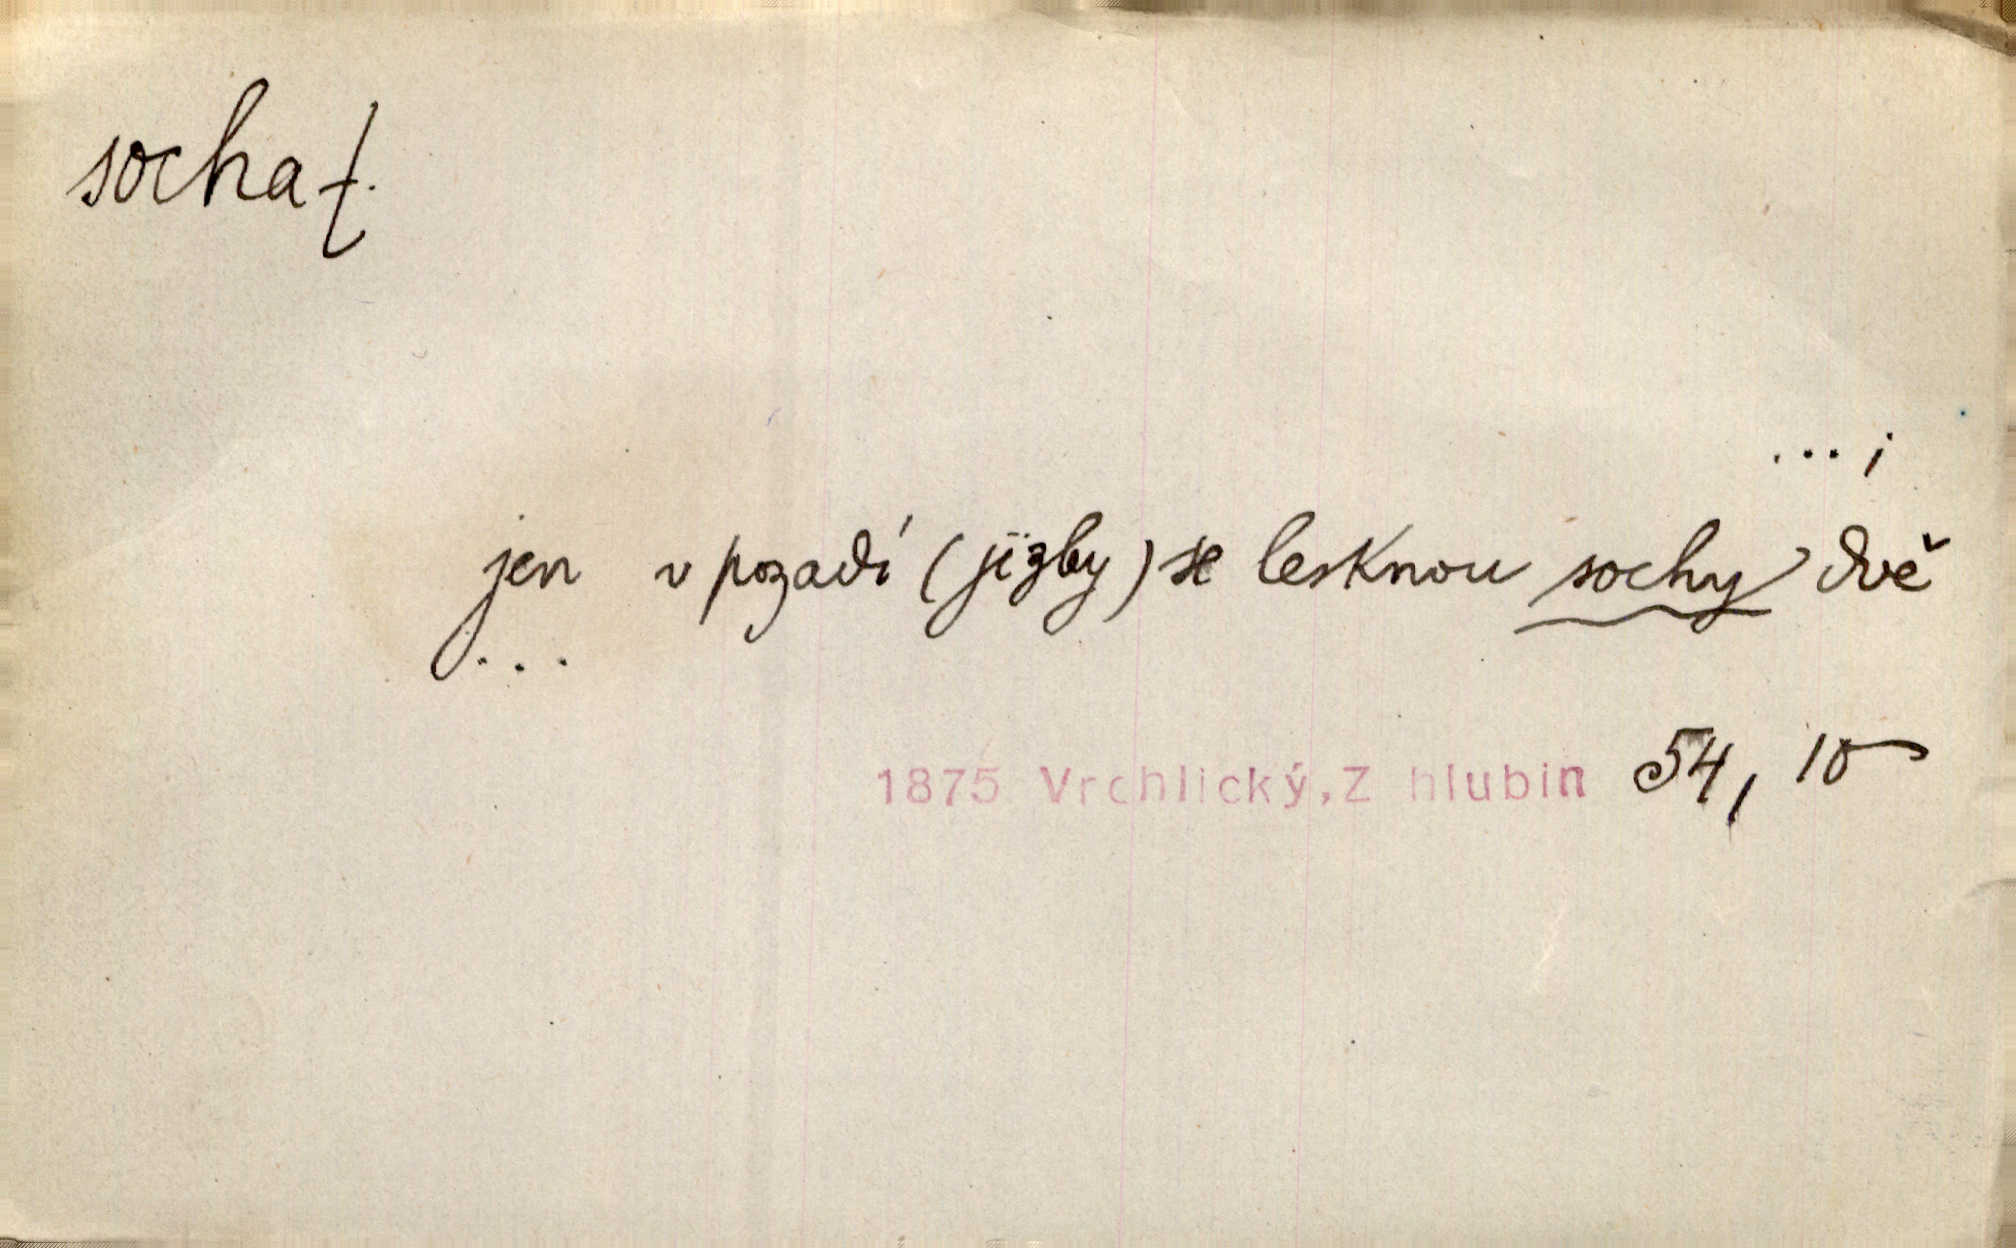 socha f.
... ;
jen v pozadí (jizby) se lesknou sochy dvě
...
1875 Vrchlický, Z hlubin 54, 10